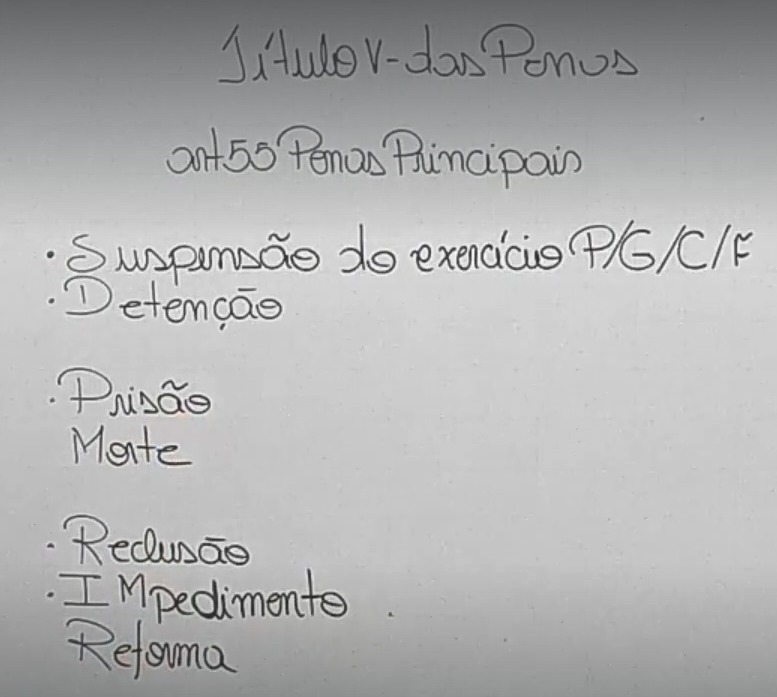 Título V - das Penas
art 55 Penas Principais
· Suspensão do exercício P/G/C/F
· Detenção
· Prisão
Morte
· Reclusão
· IMpedimento .
Reforma